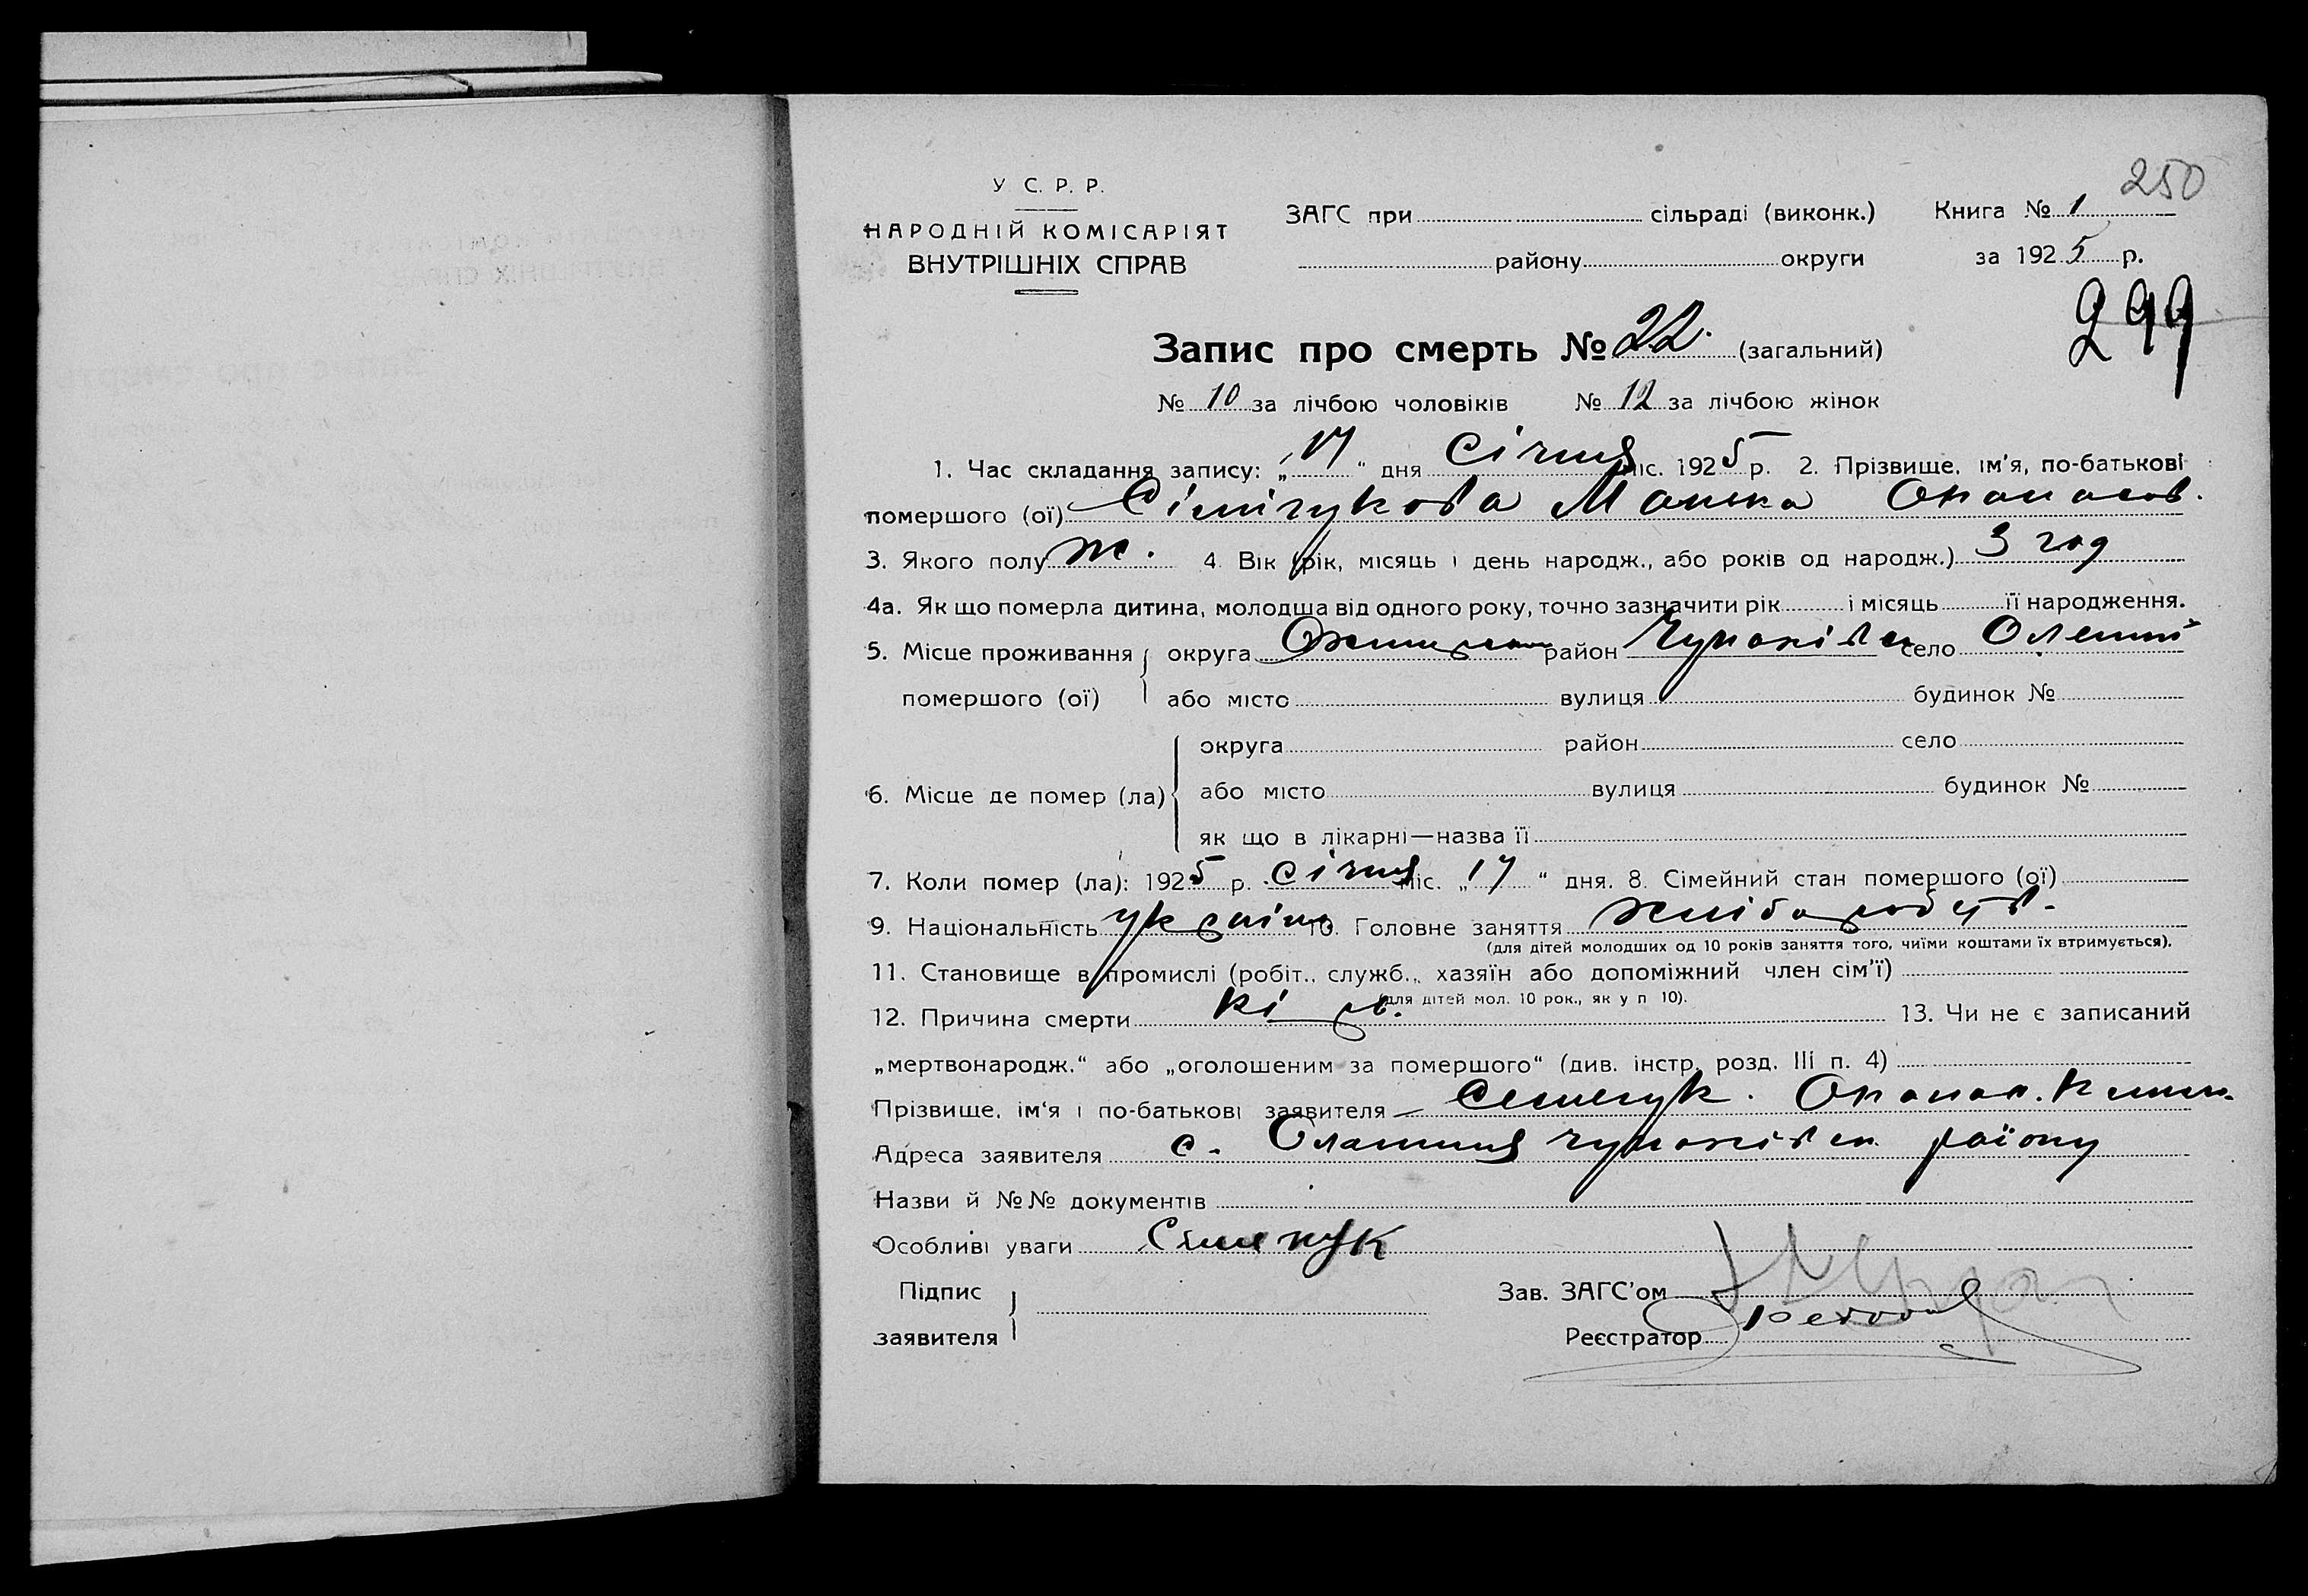 250
У С. Р. Р.
НАРОДНІЙ КОМІСАРІЯТ
ВНУТРІШНІХ СПРАВ
ЗАГС при сільраді (виконк.) Книга № 1
району округи за 1925 р.
299
Запис про смерть № 22. (загальний)
№ 10 за лічбою чоловіків № 12 за лічбою жінок
1. Час складання запису: „17“ дня Січня міс. 1925 р. 2. Прізвище, ім'я, по-батькові
помершого (ої) Сімічукова Опанасов.
3. Якого полу ж. 4. Вік (рік, місяць і день народж., або років од народж.) 3 год
4а. Як що померла дитина, молодша від одного року, точно зазначити рік і місяць її народження.
5. Місце проживання округа район Чупахівськ село
помершого (ої) або місто вулиця будинок №
округа район село
6. Місце де помер (ла) або місто вулиця будинок №
як що в лікарні—назва її
7. Коли помер (ла): 1925 р. січня міс. „17“ дня. 8. Сімейний стан помершого (ої)
9. Національність україн 10. Головне заняття хліборобств.
(для дітей молодших од 10 років заняття того, чиїми коштами їх втримується).
11. Становище в промислі (робіт., служб., хазяїн або допоміжний член сім'ї)
(для дітей мол. 10 рок., як у п 10).
12. Причина смерти кір. 13. Чи не є записаний
„мертвонародж.“ або „оголошеним за помершого“ (див. інстр. розд. III п. 4)
Прізвище, ім'я і по-батькові заявителя Семенук. Опанас.
Адреса заявителя с. Олешня чупахівськ району
Назви й №№ документів
Особливі уваги Сименук
Підпис Зав. ЗАГС'ом
заявителя Реєстратор